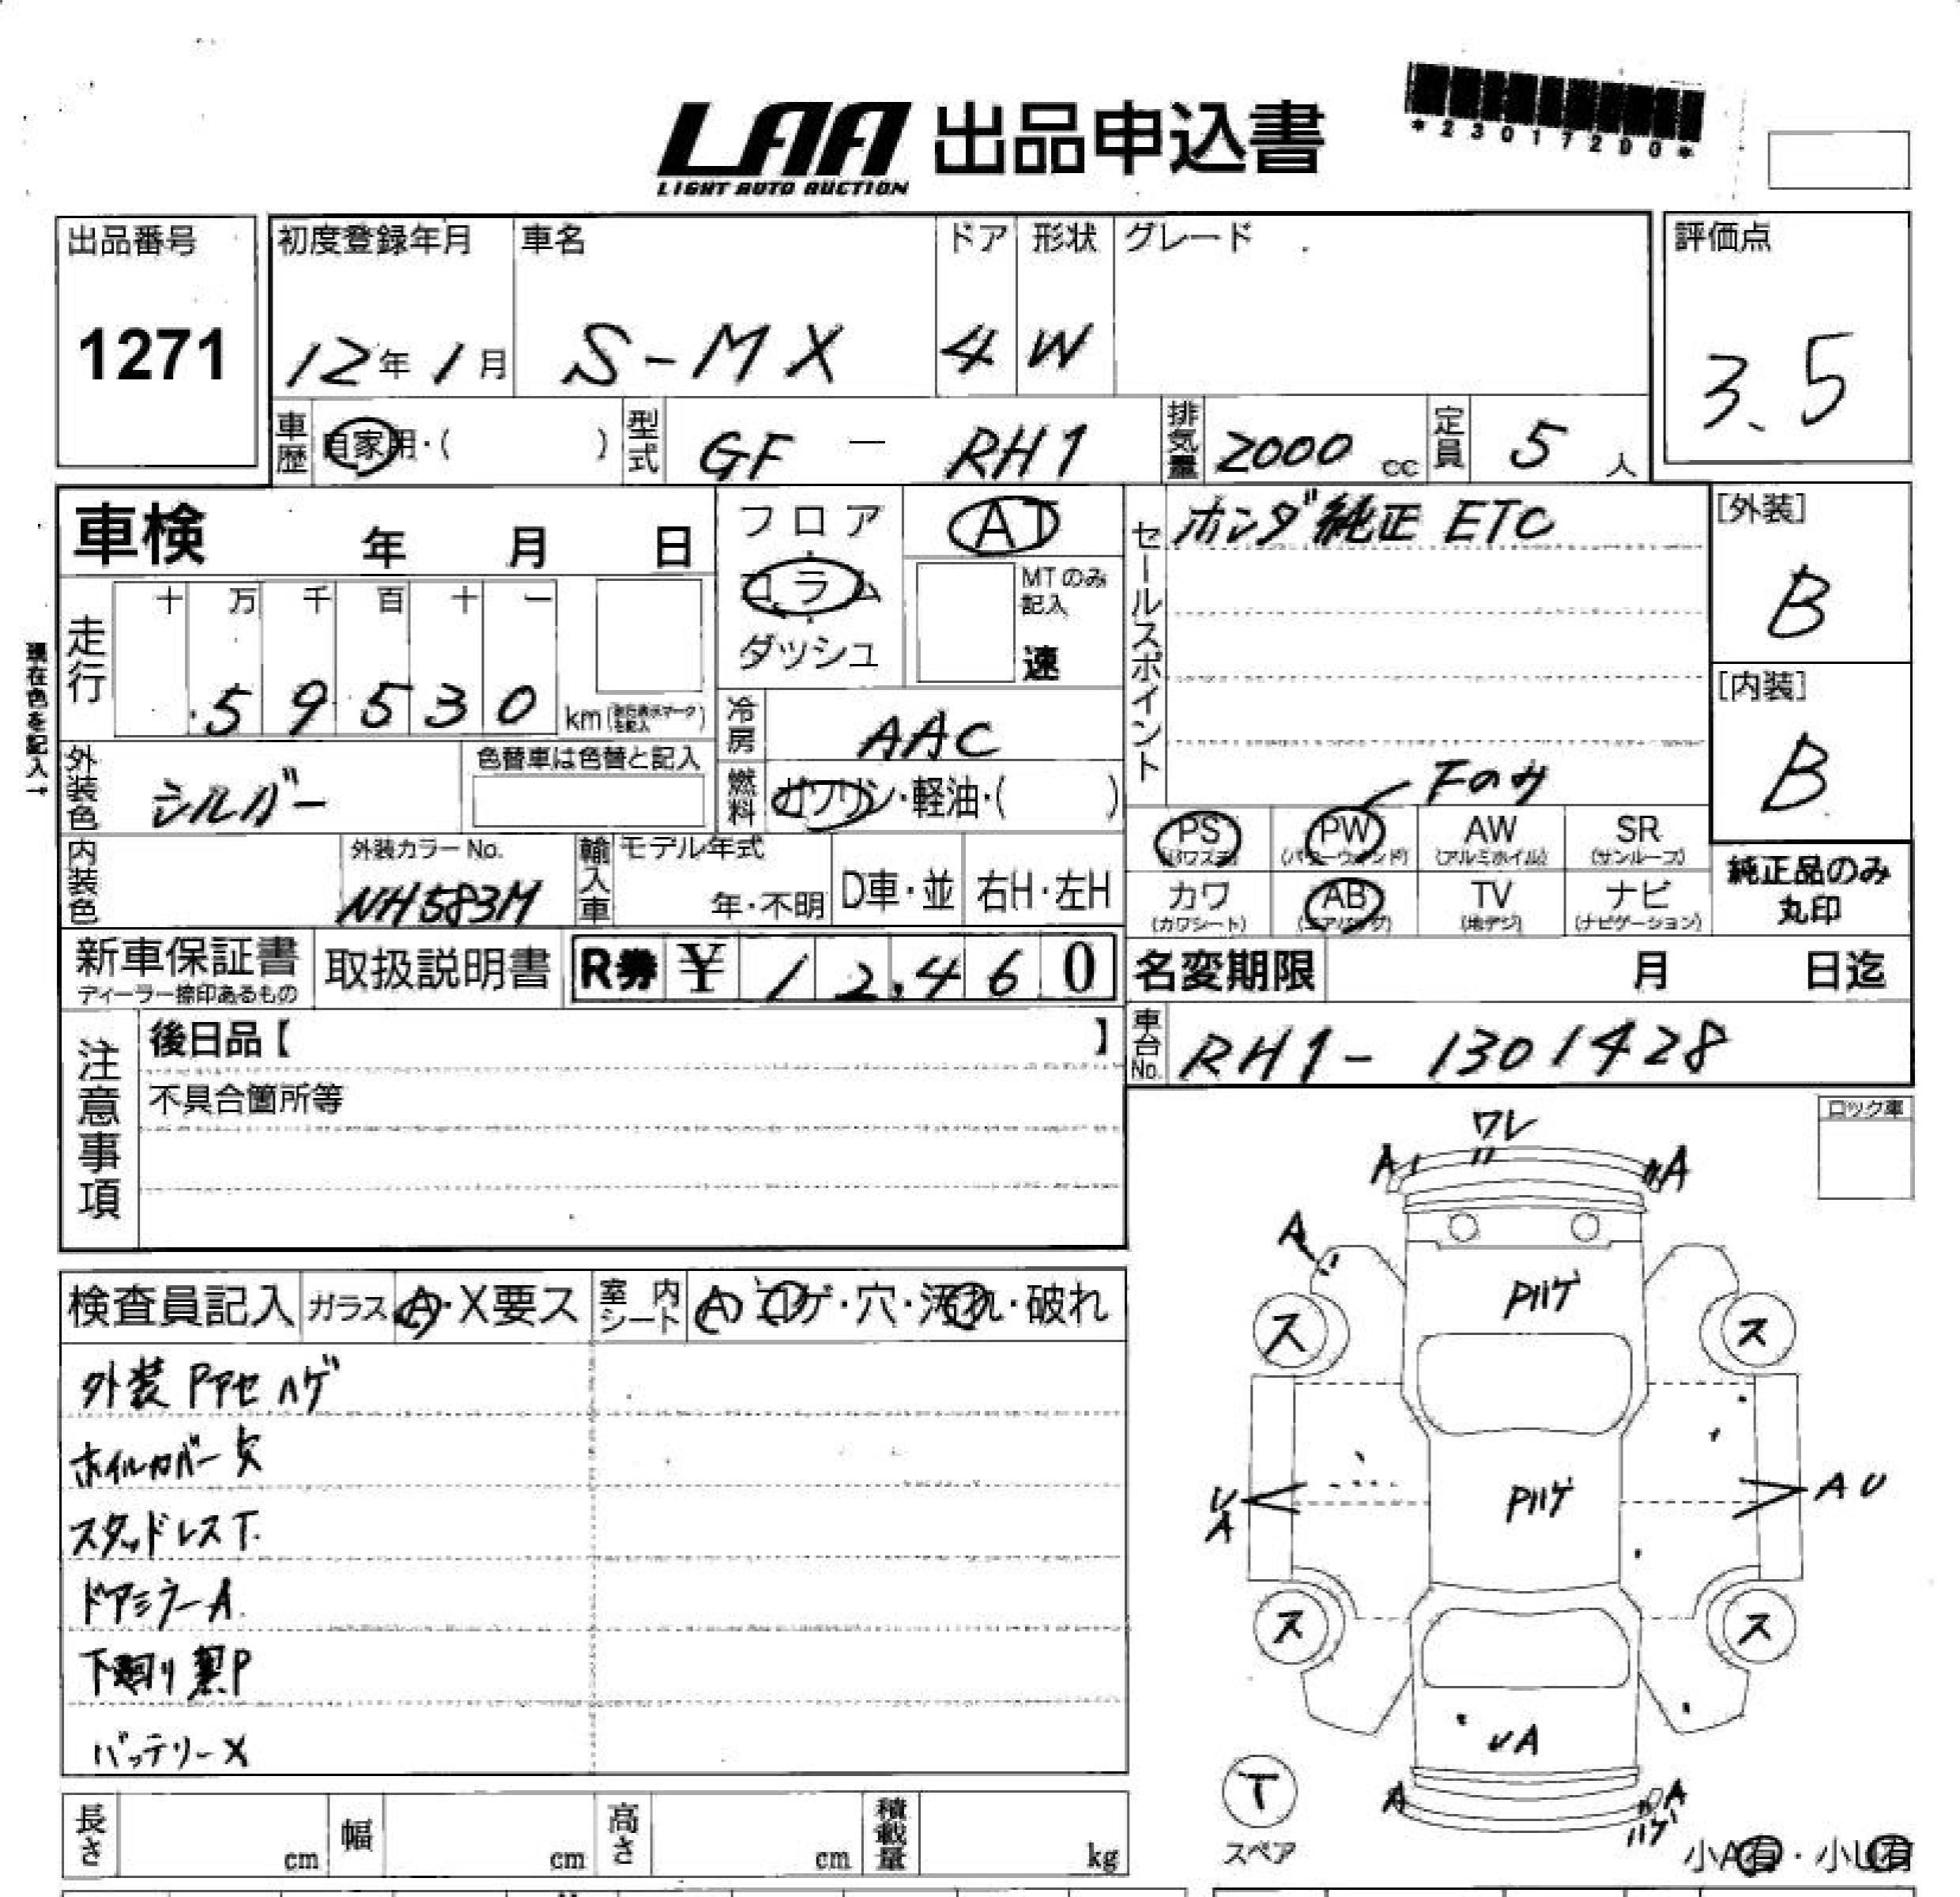 LAA 出品申込書
LIGHT AUTO AUCTION
*23017200*
出品番号 初度登録年月 車名 ドア 形状 グレード 評価点
1271 12年1月 S-MX 4 W 3.5
車歴 自家用・( ) 型式 GF － RH1 排気量 2000 cc 定員 5 人
車検 年 月 日
フロア AT
コラム MTのみ記入
ダッシュ 速
セールスポイント ホンダ純正 ETC
[外装]
B
[内装]
B
走行 十 万 千 百 十 一
5 9 5 3 0 km
現在色を記入↑
冷房 AAC
外装色 シルバー 色替車は色替と記入
燃料 ガソリン・軽油・( )
Fのみ
PS PW AW SR
(パワステ) (パワーウィンド) (アルミホイル) (サンルーフ)
カワ AB TV ナビ
(カワシート) (エアバッグ) (地デジ) (ナビゲーション)
純正品のみ
丸印
内装色 外装カラーNo. NH583M 輸入車 モデル年式 年・不明 D車・並 右H・左H
新車保証書 取扱説明書 R券 ¥ 12,460
ディーラー捺印あるもの
名変期限 月 日迄
車台No. RH1-1301428
注意事項
後日品【 】
不具合箇所等
ロック車
検査員記入 ガラス A・X要ス 室内シート A コゲ・穴・汚れ・破れ
外装 Pアセ ハゲ
ホイルカバー欠
スタッドレスT.
ドアミラーA.
下廻り 黒P
バッテリーX
ワレ
A A
A
Pハゲ
ス ス
Pハゲ
U
A
A U
ス ス
UA
T
スペア
A A
ハゲ
小A有・小U有
長さ cm 幅 cm 高さ cm 積載量 kg